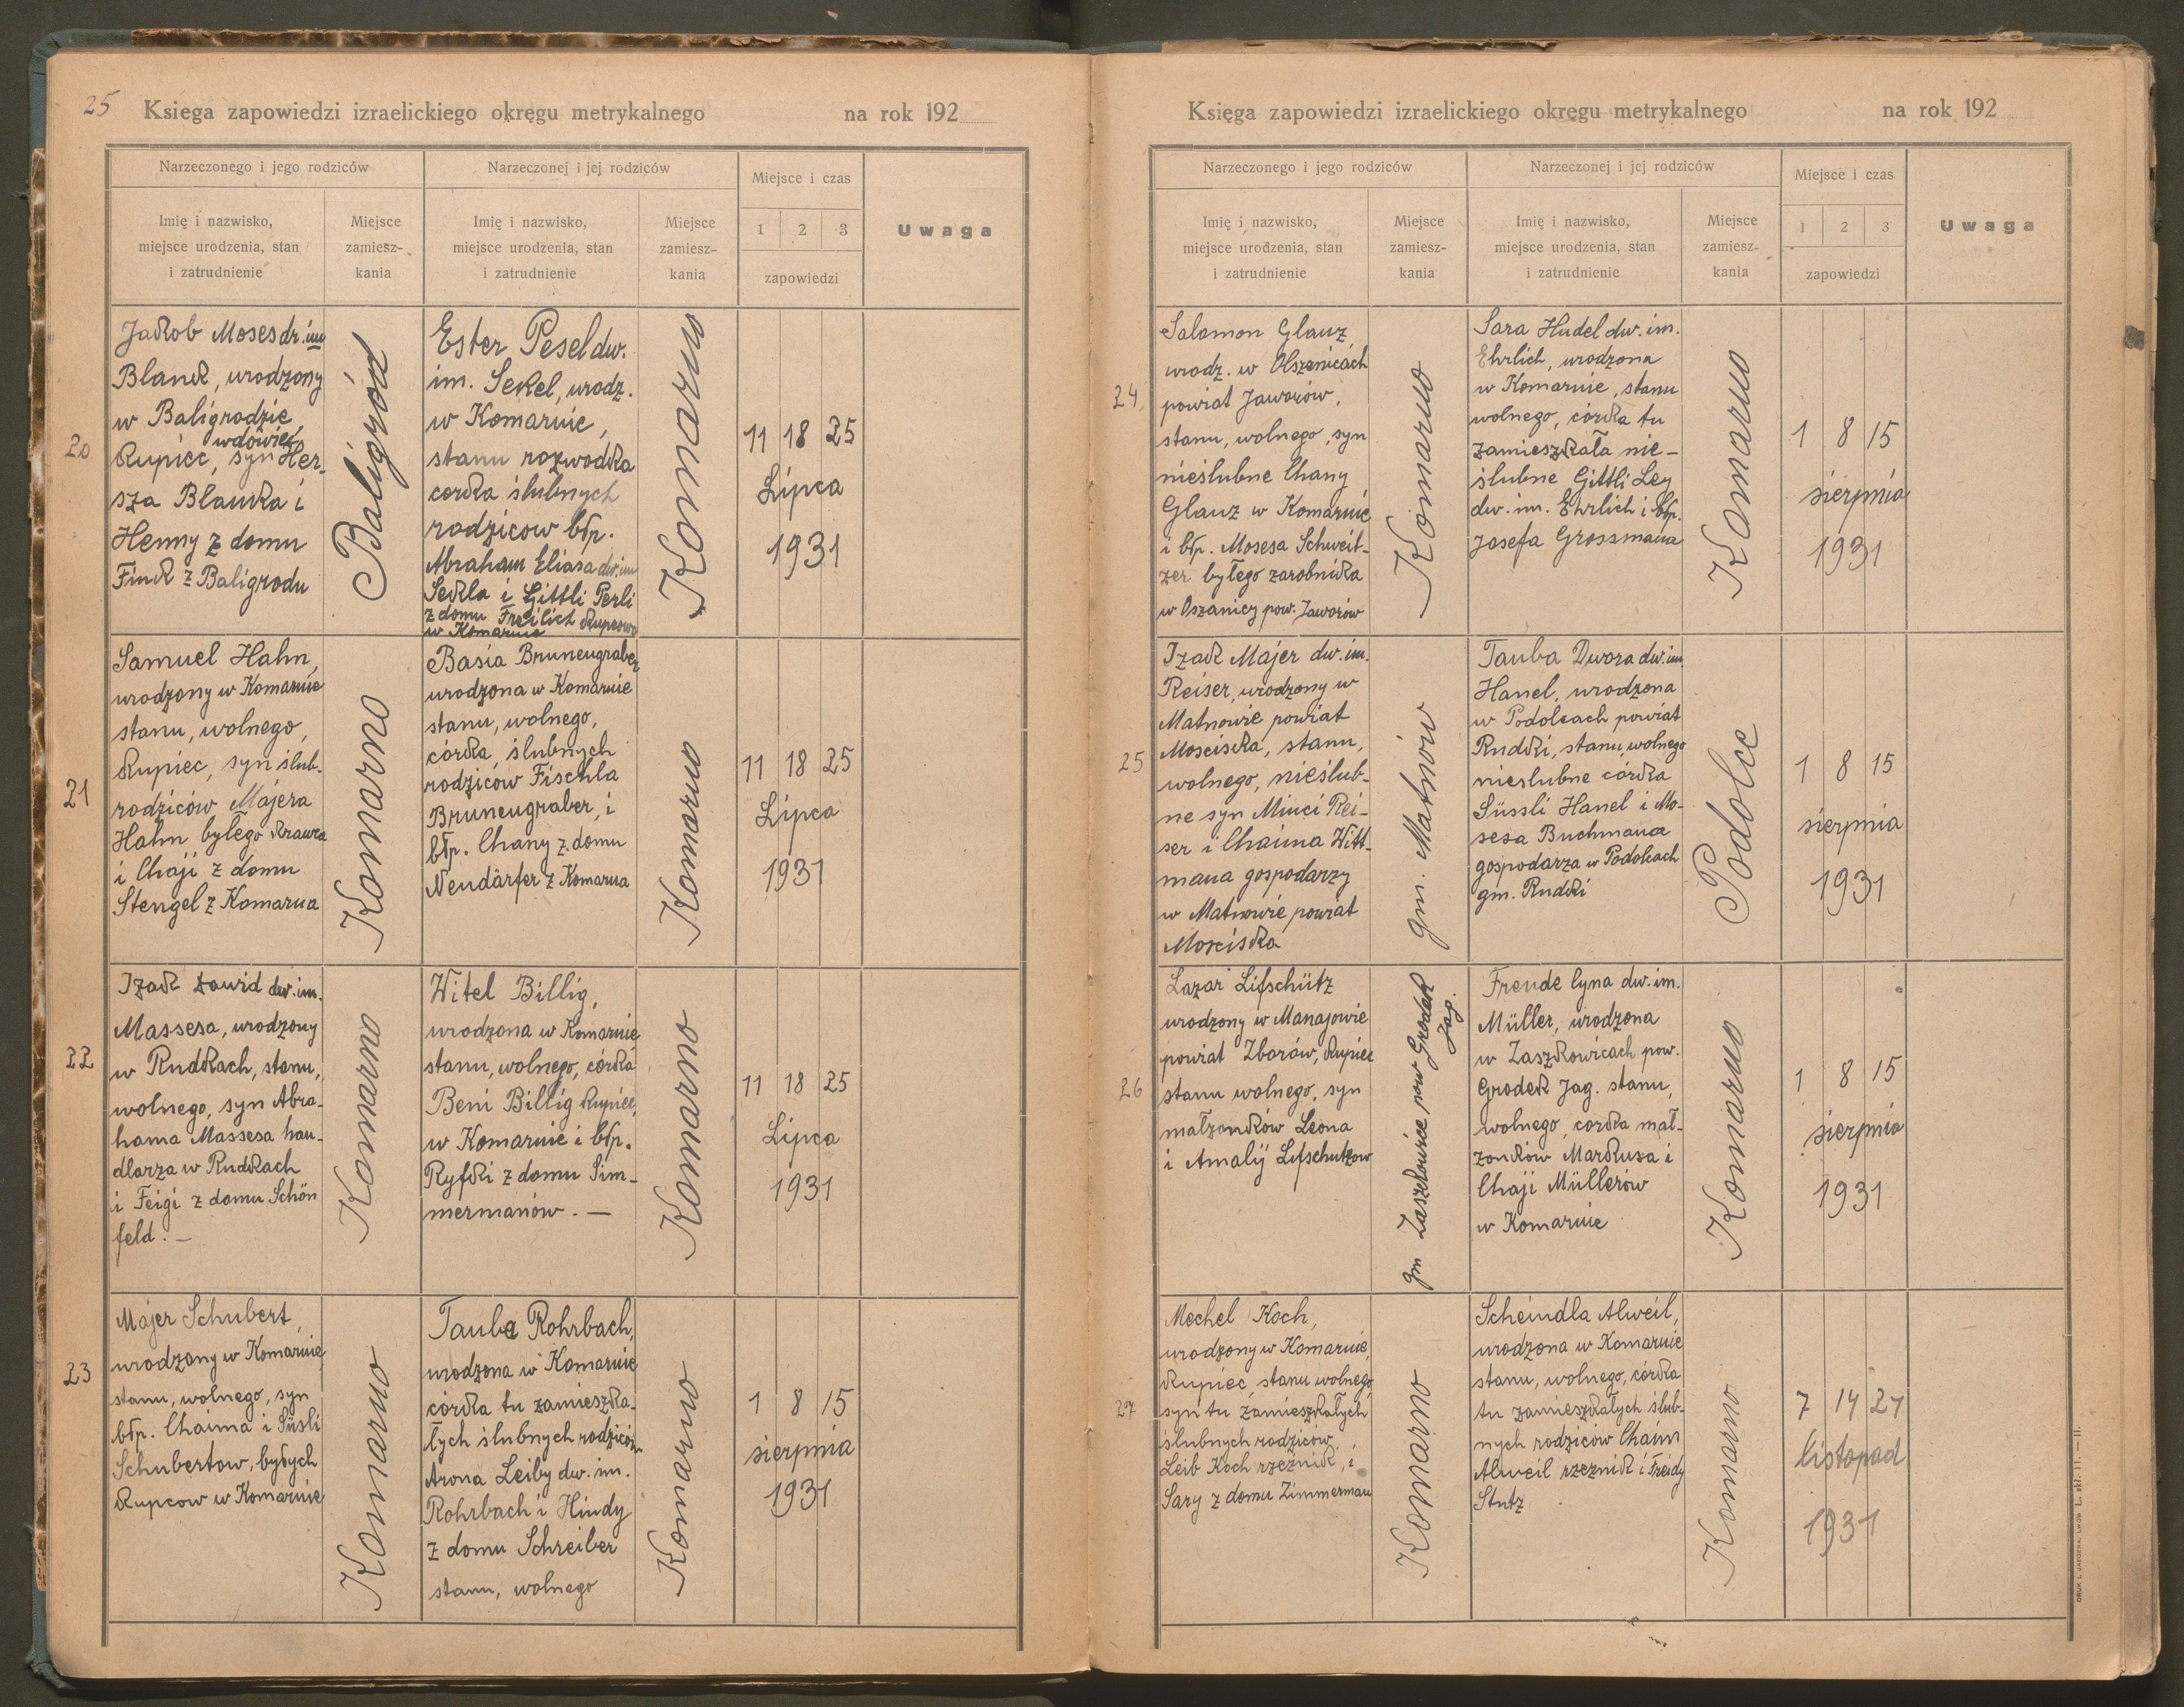 25
Księga zapowiedzi izraelickiego okręgu metrykalnego na rok 192
Narzeczonego i jego rodziców
Narzeczonej i jej rodziców
Miejsce i czas
Imię i nazwisko,
miejsce urodzenia, stan
i zatrudnienie
Miejsce
zamiesz-
kania
Imię i nazwisko,
miejsce urodzenia, stan
i zatrudnienie
Miejsce
zamiesz-
kania
1 2 3
zapowiedzi
Uwaga
20
Jakob Moses dr. im
Blank, urodzony
w Baligrodzie
wdowiec,
kupiec, syn Her-
sza Blanka i
Henny z domu
Fink z Baligrodu
Baligród
Ester Pesel dw.
im. Sekel, urodz.
w Komarnie,
stanu rozwodka
corka ślubnych
rodzicow błp.
Abraham Eliasa dw. im
Sekla i Gittli Perli
z domu Freilich kupcow
w Komarnie
Komarno
11 18 25
Lipca
1931
21
Samuel Hahn,
urodzony w Komarnie
stanu, wolnego,
kupiec, syn ślub.
rodziców Majera
Hahn byłego krawca
i Chaji z domu
Stengel z Komarna
Komarno
Basia Brunengraber,
urodzona w Komarnie
stanu, wolnego,
córka, ślubnych
rodziców Fischla
Brunengraber, i
błp. Chany z domu
Neudärfer z Komarna
Komarno
11 18 25
Lipca
1931
22
Izak Dawid dw. im.
Massesa, urodzony
w Rudkach, stanu,
wolnego, syn Abra-
hama Massesa han-
dlarza w Rudkach
i Feigi z domu Schön
feld. —
Komarno
Witel Billig,
urodzona w Komarnie
stanu, wolnego, córka
Beni Billig kupiec,
w Komarnie i błp.
Ryfki z domu Sim-
mermanów. —
Komarno
11 18 25
Lipca
1931
23
Majer Schubert,
urodzony w Komarnie
stanu, wolnego, syn
błp. Chaima i Süsli
Schubertow, byłych
kupcow w Komarnie
Komarno
Taube Rohrbach,
urodzona w Komarnie
córka tu zamieszka-
łych ślubnych rodziców
Arona Leiby dw. im.
Rohrbach i Hindy
z domu Schreiber
stanu, wolnego
Komarno
1 8 15
sierpnia
1931
Księga zapowiedzi izraelickiego okręgu metrykalnego na rok 192
Narzeczonego i jego rodziców
Narzeczonej i jej rodziców
Miejsce i czas
Imię i nazwisko,
miejsce urodzenia, stan
i zatrudnienie
Miejsce
zamiesz-
kania
Imię i nazwisko,
miejsce urodzenia, stan
i zatrudnienie
Miejsce
zamiesz-
kania
1 2 3
zapowiedzi
Uwaga
24
Salomon Glanz,
urodz. w Olszenicách
powiat Jaworów,
stanu, wolnego, syn
nieślubne Chany
Glanz w Komarnie
i błp. Mosesa Schweit-
zer byłego zarobnika
w Oszanicy pow. Jaworów
Komarno
Sara Hudel dw. im.
Ehrlich, urodzona
w Komarnie, stanu
wolnego, córka tu
zamieszkała nie-
ślubne Gittli Ley
dw. im. Ehrlich i błp.
Josefa Grossmana
Komarno
1 8 15
sierpnia
1931
25
Izak Majer dw. im.
Reiser, urodzony w
Matnowie powiat
Mosciska, stanu,
wolnego, nieślub-
ne syn Minci Rei-
ser i Chaima Witt-
mana gospodarzy
w Matnowie powiat
Mosciska
gm. Matnów
Tauba Dwora dw. im.
Hanel, urodzona
w Podolcach powiat
Rudki, stanu, wolnego
nieslubne córka
Süssli Hanel i Mo-
sesa Buchmana
gospodarza w Podolcach
gm. Rudki
Podolce
1 8 15
sierpnia
1931
26
Lazar Lifschütz
urodzony w Manajowie
powiat Zborów, kupiec
stanu wolnego, syn
małzonków Leona
i Amalij Lifschutzow
gm Zaszkowice pow Grodek
Jag.
Freude Cyna dw. im.
Müller, urodzona
w Zaszkowicach pow.
Grodek Jag. stanu,
wolnego, corka mał-
zonków Markusa i
Chaji Müllerów
w Komarnie
Komarno
1 8 15
sierpnia
1931
27
Mechel Koch,
urodzony w Komarnie,
kupiec, stanu wolnego
syn tu zamieszkałych
ślubnych rodziców
Leib Koch rzeznik, i
Sary z domu Zimmerman
Komarno
Scheindla Alweil,
urodzona w Komarnie
stanu, wolnego, córka
tu zamieszkałych ślub-
nych rodziców Chaim
Alweil rzeznik i Freidy
Stutz
Komarno
7 14 21
listopad
1931
DRUK I. JAEGERA, LWÓW L. skł. 11. — II.